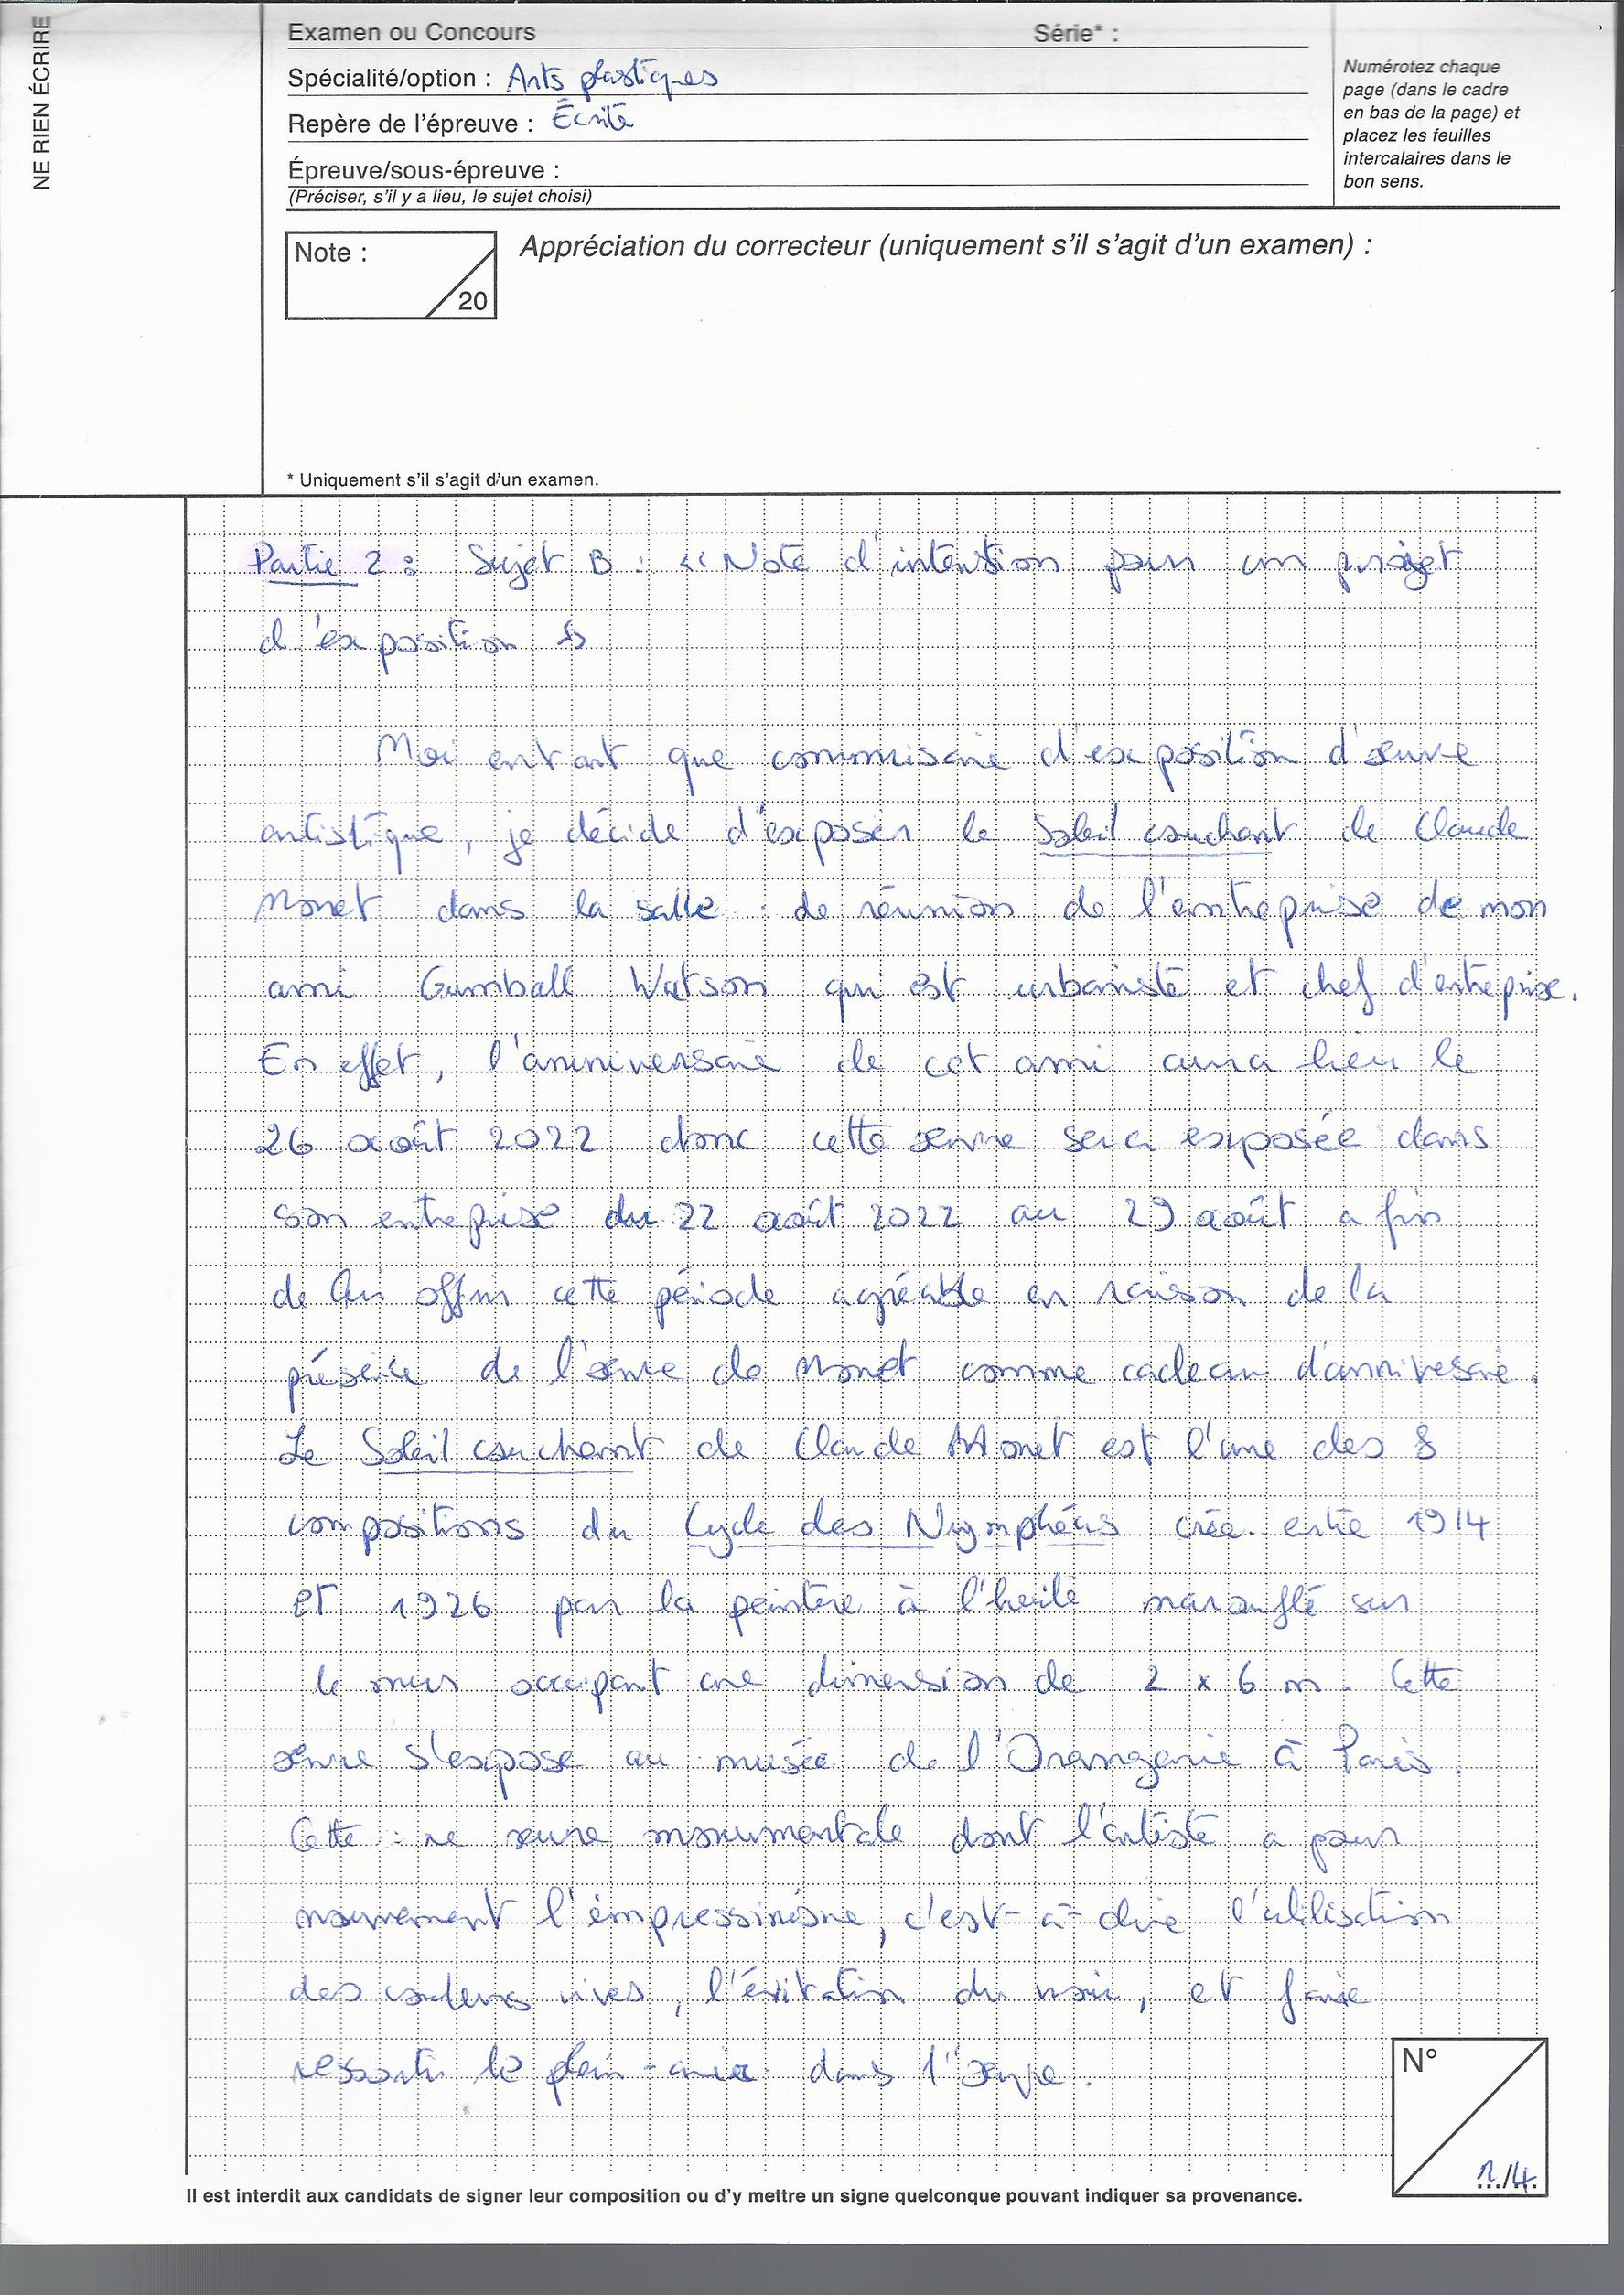 NE RIEN ÉCRIRE
Examen ou Concours Série* :
Spécialité/option : Arts plastiques
Repère de l'épreuve : Écrite
Épreuve/sous-épreuve :
(Préciser, s'il y a lieu, le sujet choisi)
Numérotez chaque
page (dans le cadre
en bas de la page) et
placez les feuilles
intercalaires dans le
bon sens.
Note :
20
Appréciation du correcteur (uniquement s'il s'agit d'un examen) :
* Uniquement s'il s'agit d'un examen.
Partie 2 : Sujet B : « Note d'intention pour un projet
d'exposition »
Moi entant que commisaire d'exposition d'œuvre
artistique, je décide d'exposer le Soleil couchant de Claude
Monet dans la salle de réunion de l'entreprise de mon
ami Gumball Watson qui est urbaniste et chef d'entreprise.
En effet, l'anniversaire de cet ami aura lieu le
26 août 2022 donc cette œuvre sera exposée dans
son entreprise du 22 août 2022 au 29 août afin
de lui offrir cette période agréable en raison de la
présence de l'œuvre de Monet comme cadeau d'anniversaire.
Le Soleil couchant de Claude Monet est l'une des 8
compositions du Cycle des Nymphéas crée entre 1914
et 1926 par la peinture à l'huile marouflé sur
le mur occupant une dimension de 2 x 6 m. Cette
œuvre s'expose au musée de l'Orangerie à Paris.
Cette œuvre monumentale dont l'artiste a pour
mouvement l'impressinisme, c'est-à-dire l'utilisation
des couleurs vives, l'évitation du noir, et faire
ressortir le plein-air dans l'œuvre.
N°
1/4
Il est interdit aux candidats de signer leur composition ou d'y mettre un signe quelconque pouvant indiquer sa provenance.